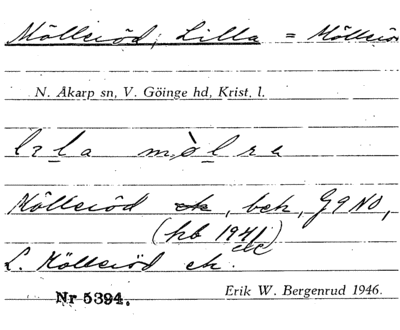 Mölleröd, Lilla = Mölleröd
N. Åkarp sn, V. Göinge hd, Krist. l.
lɩla mòlra
Mölleröd ek, beb, G9NO,
(hb 1941)
etc
L. Mölleröd ek.
Nr 5394. Erik W. Bergenrud 1946.